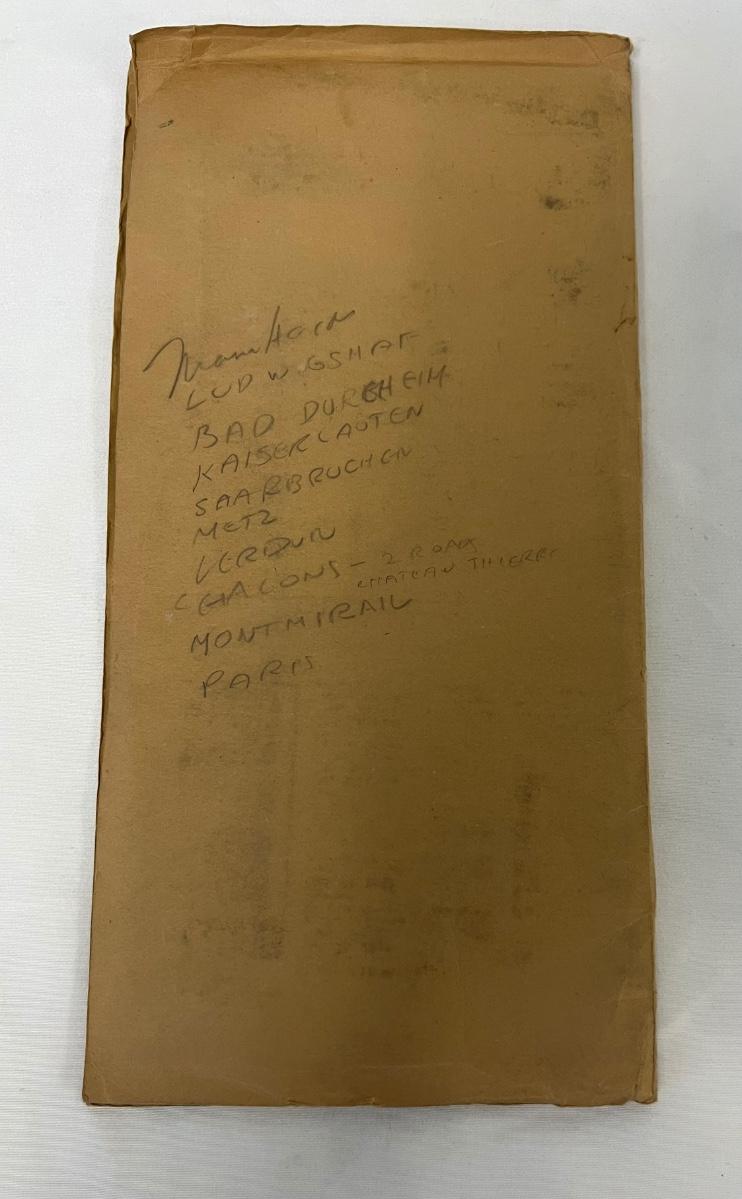 Mannheim
LUDWIGSHAF
BAD DURKHEIM
KAISERLAUTEN
SAARBRUCHEN
METZ
VERDUN
CHALONS - 2 ROADS
CHATEAU THIERRY
MONTMIRAIL
PARIS